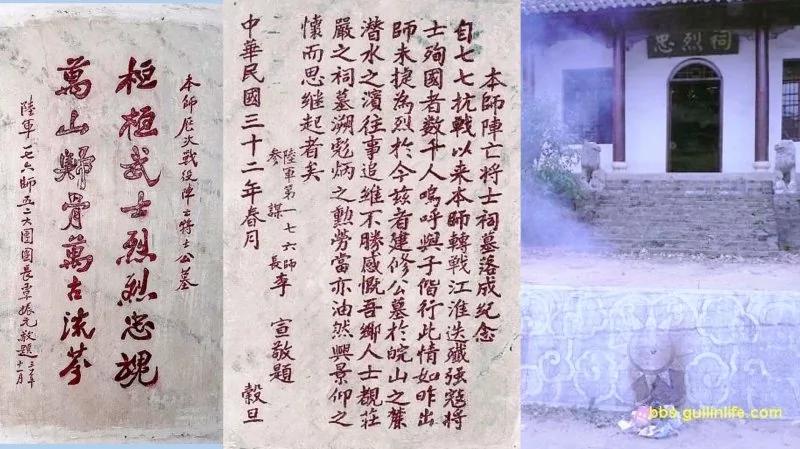 本師歷次戰役陣亡將士公墓
桓桓武士烈烈忠魂
萬山歸骨萬古流芬
陸軍一七六師五二六團團長覃振元敬題
三二年
十一月
本師陣亡將士祠墓落成紀念
自七七抗戰以来本師轉戰江淮迭殲强寇將
士殉國者数千人嗚呼與子偕行此情如昨出
師未捷為烈於今兹者建修公墓於皖山之麓
潜水之濱往事追維不勝感慨吾鄉人士覩莊
嚴之祠墓溯彪炳之勳勞當亦油然興景仰之
懷而思继起者矣
陸軍第一七六師
參謀長李宣敬題
中華民國三十二年春月 穀旦
忠烈祠
bbs.guilinlife.com